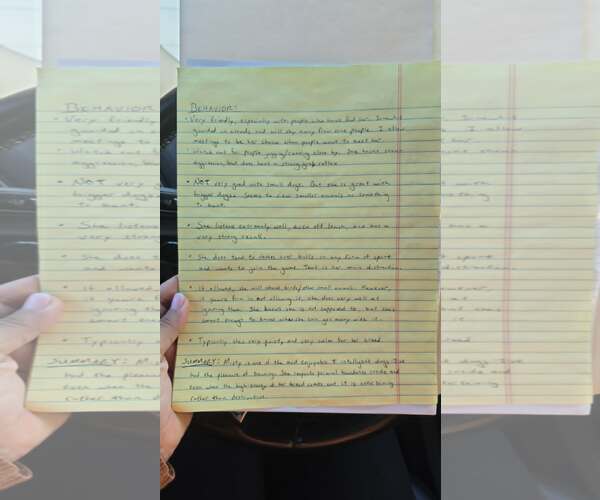 BEHAVIOR:
• Very friendly, especially with people who have fed her. Is more
guarded on                 and will shy away from some people. I allow
meetings to be her choice when people want to meet her.
       out for people jogging/running close by. She                shows
aggression, but does have a strong
• NOT very good with small dogs. But she is great with
bigger doggos. Seems to view smaller animals as something
to hunt.
• She listens extremely well, even off leash, and has a
very strong recall.
• She does tend to chase over balls in any form of sport
and wants to join the game. That is her main distraction.
• If allowed, she will chase birds/other small animals. However,
if you're firm in not allowing it, she does very well at
ignoring them. She knows she is not supposed to, but she's
smart enough to know when she can get away with it.
• Typically                                     and very calm for her breed.
SUMMARY: Misty is one of the most enjoyable & intelligent dogs I've
had the pleasure of training. She respects personal boundaries inside and
even when the high-energy of her breed comes out, it is                     
rather than destructive.